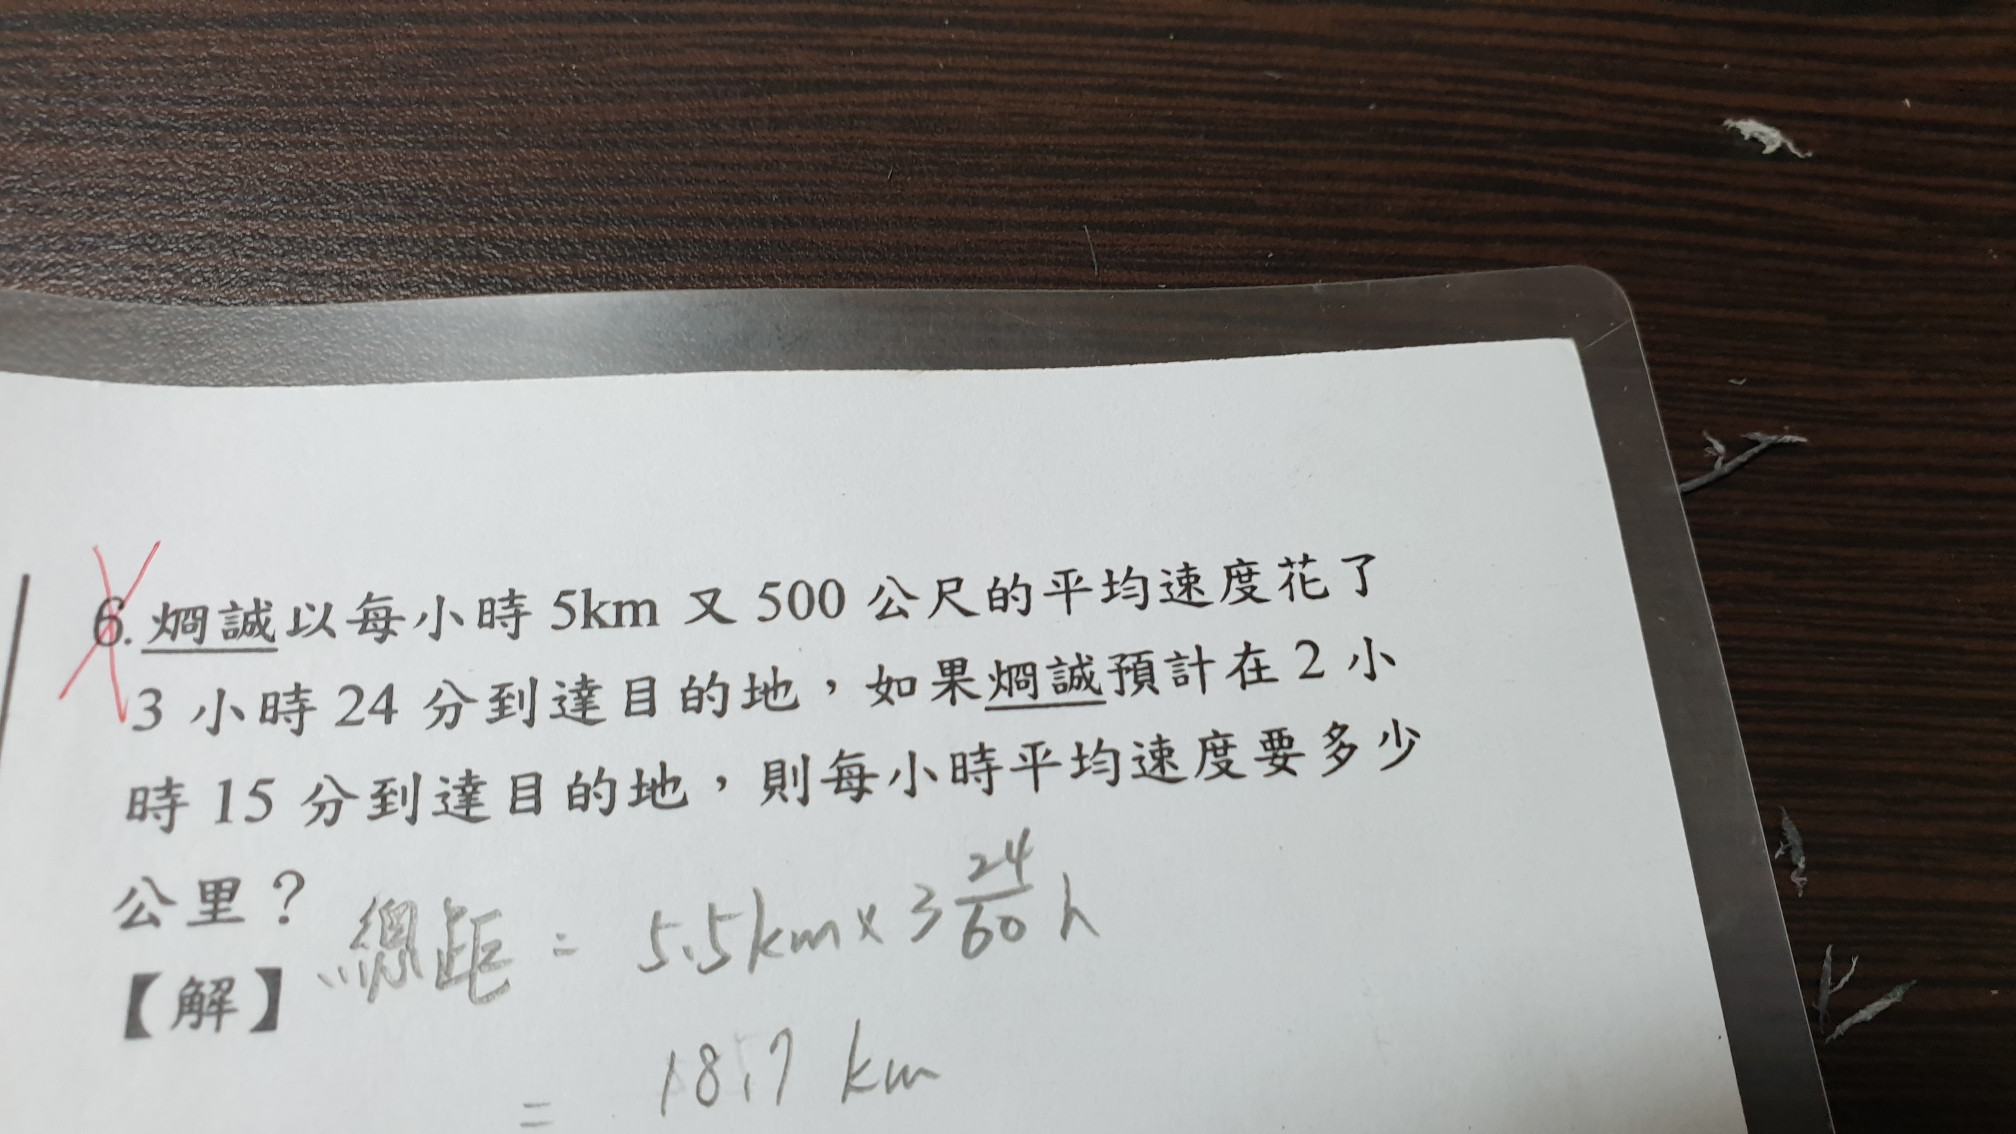 6. 烱誠以每小時 5km 又 500 公尺的平均速度花了
3 小時 24 分到達目的地，如果烱誠預計在 2 小
時 15 分到達目的地，則每小時平均速度要多少
公里？
【解】 總距 = 5.5km × 3 24/60 h
= 18.7 km